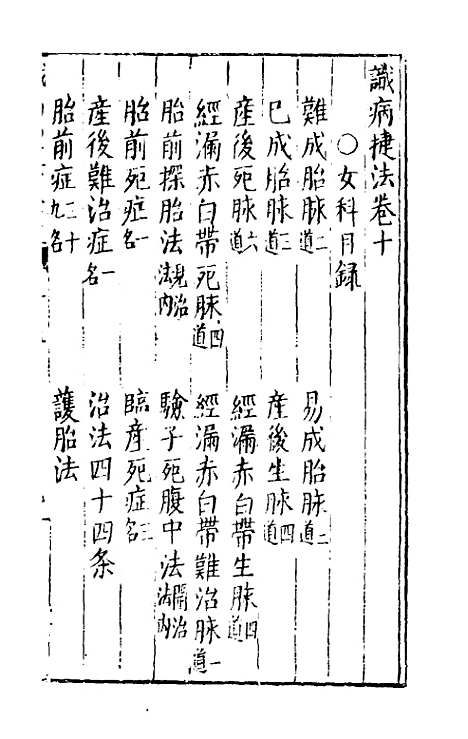 識病捷法卷十
○女科目錄
難成胎脉二道 易成胎脉二道
已成胎脉三道 產後生脉四道
產後死脉六道 經漏赤白帶生脉四道
經漏赤白帶死脉四道 經漏赤白帶難治脉一道
胎前探胎法見治法內 驗子死腹中法開治法內
胎前死症一名 臨產死症三名
產後難治症一名 治法四十四条
胎前症三十九名 護胎法